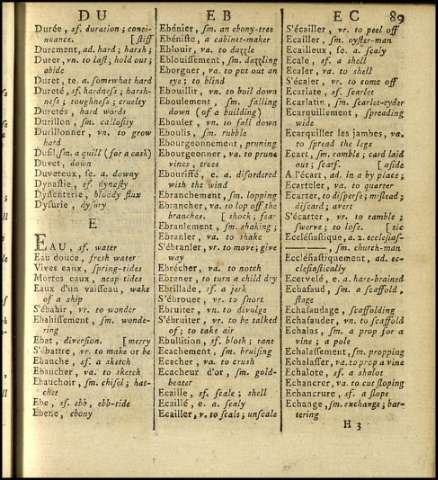 DU
Durée, sf. duration; conti-
nuance. [stiff
Durement, ad. hard; harsh;
Durer, vn. to last; hold out;
abide
Duret, te. a. somewhat hard
Dureté, sf. hardness; harsh-
ness; roughness; cruelty
Duretés, hard words
Durillon, sm. callosity
Durillonner, vn. to grow
hard
Dusil, sm. a quill (for a cask)
Duvet, down
Duveteux, se. a. downy
Dynastie, sf. dynasty
Dyssenterie, bloody flux
Dysurie, dysury
E
EAU, sf. water
Eau douce, fresh water
Vives eaux, spring-tides
Mortes eaux, neap tides
Eaux d'un vaisseau, wake
of a ship
S'ébahir, vr. to wonder
Ebahissement, sm. wonde-
ring
Ebat, diversion. [merry
S'ébattre, vr. to make or be
Ebauche, sf. a sketch
Ebaucher, va. to sketch
Ebauchoir, sm. chisel; hat-
chet
Ebe, sf. ebb, ebb-tide
Ebene, ebony
EB
Ebénier, sm. an ebony-tree
Ebéniste, a cabinet-maker
Eblouir, va. to dazzle
Eblouissement, sm. dazzling
Eborgner, va. to put out an
eye; to blind
Ebouillir, vn. to boil down
Eboulement, sm. falling
down (of a building)
Ebouler, vn. to fall down
Eboulis, sm. rubble
Ebourgeonnement, pruning
Ebourgeonner, va. to prune
vines, trees
Ebouriffé, e. a. disordered
with the wind
Ebranchement, sm. lopping
Ebrancher, va. to lop off the
branches. [shock, fear
Ebranlement, sm. shaking;
Ebranler, va. to shake
S'ébranler, vr. to move; give
way
Ebrécher, va. to notch
Ebrener, to turn a child dry
Ebrillade, sf. a jerk
S'ébrouer, vr. to snort
Ebruiter, vn. to divulge
S'ébruiter, vr. to be talked
of; to take air
Ebullition, sf. bloth; rant
Ecachement, sm. bruising
Ecacher, va. to crush
Ecacheur d'or, sm. gold-
beater
Ecaille, sf. scale; shell
Ecaillé, e. a. scaly
Ecailler, v. to scale; unscale
EC 89
S'écailler, vr. to peel off
Ecailler, sm. oyster-man
Ecailleux, se. a. scaly
Ecale, sf. a shell
Ecaler, va. to shell
S'écaler, vr. to come off
Ecarlate, sf. scarlet
Ecarlatin, sm. scarlet-cyder
Ecarquillement, spreading
wide
Ecarquiller les jambes, va.
to spread the legs
Ecart, sm. ramble; card laid
out; scarf. [aside
A l'écart, ad. in a by place;
Ecarteler, va. to quarter
Ecarter, to disperse; mislead;
discard; avert
S'écarter, vr. to ramble;
swerve; to lose. [tic
Ecclésiastique, a. 2. ecclesias-
———, sm. church-man
Ecclésiastiquement, ad. ec-
clesiastically
Ecervelé, e. a. hare-brained
Echafaud, sm. a scaffold,
stage
Echafaudage, scaffolding
Echafauder, vn. to scaffold
Echalas, sm. a prop for a
vine; a pole
Echalassement, sm. propping
Echalasser, va. to prop a vine
Echalote, sf. a shalot
Echancrer, va. to cut sloping
Echancrure, sf. a slope
Echange, sm. exchange; bar-
tering
H 3